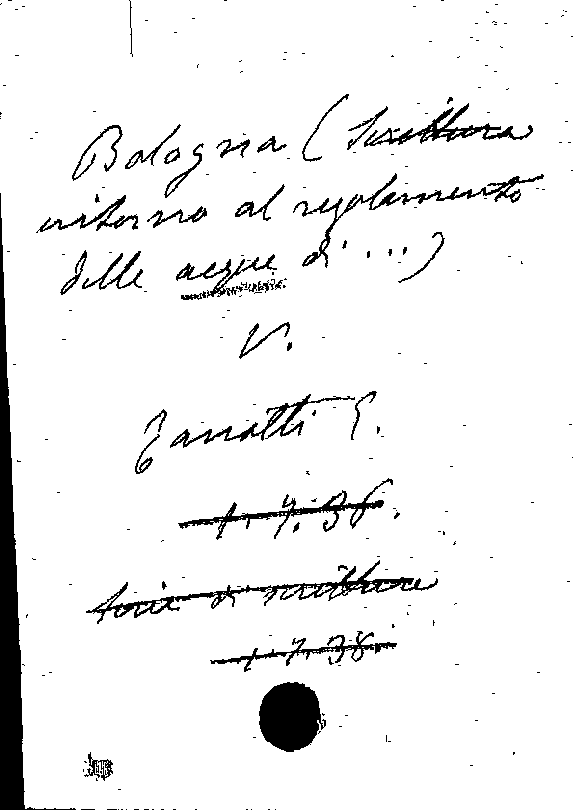 Bologna (Scrittura
intorno al regolamento
delle acque di ...)
V.
Zanotti E.
1. 7. 36.
serie di scritture
1. 7. 38.